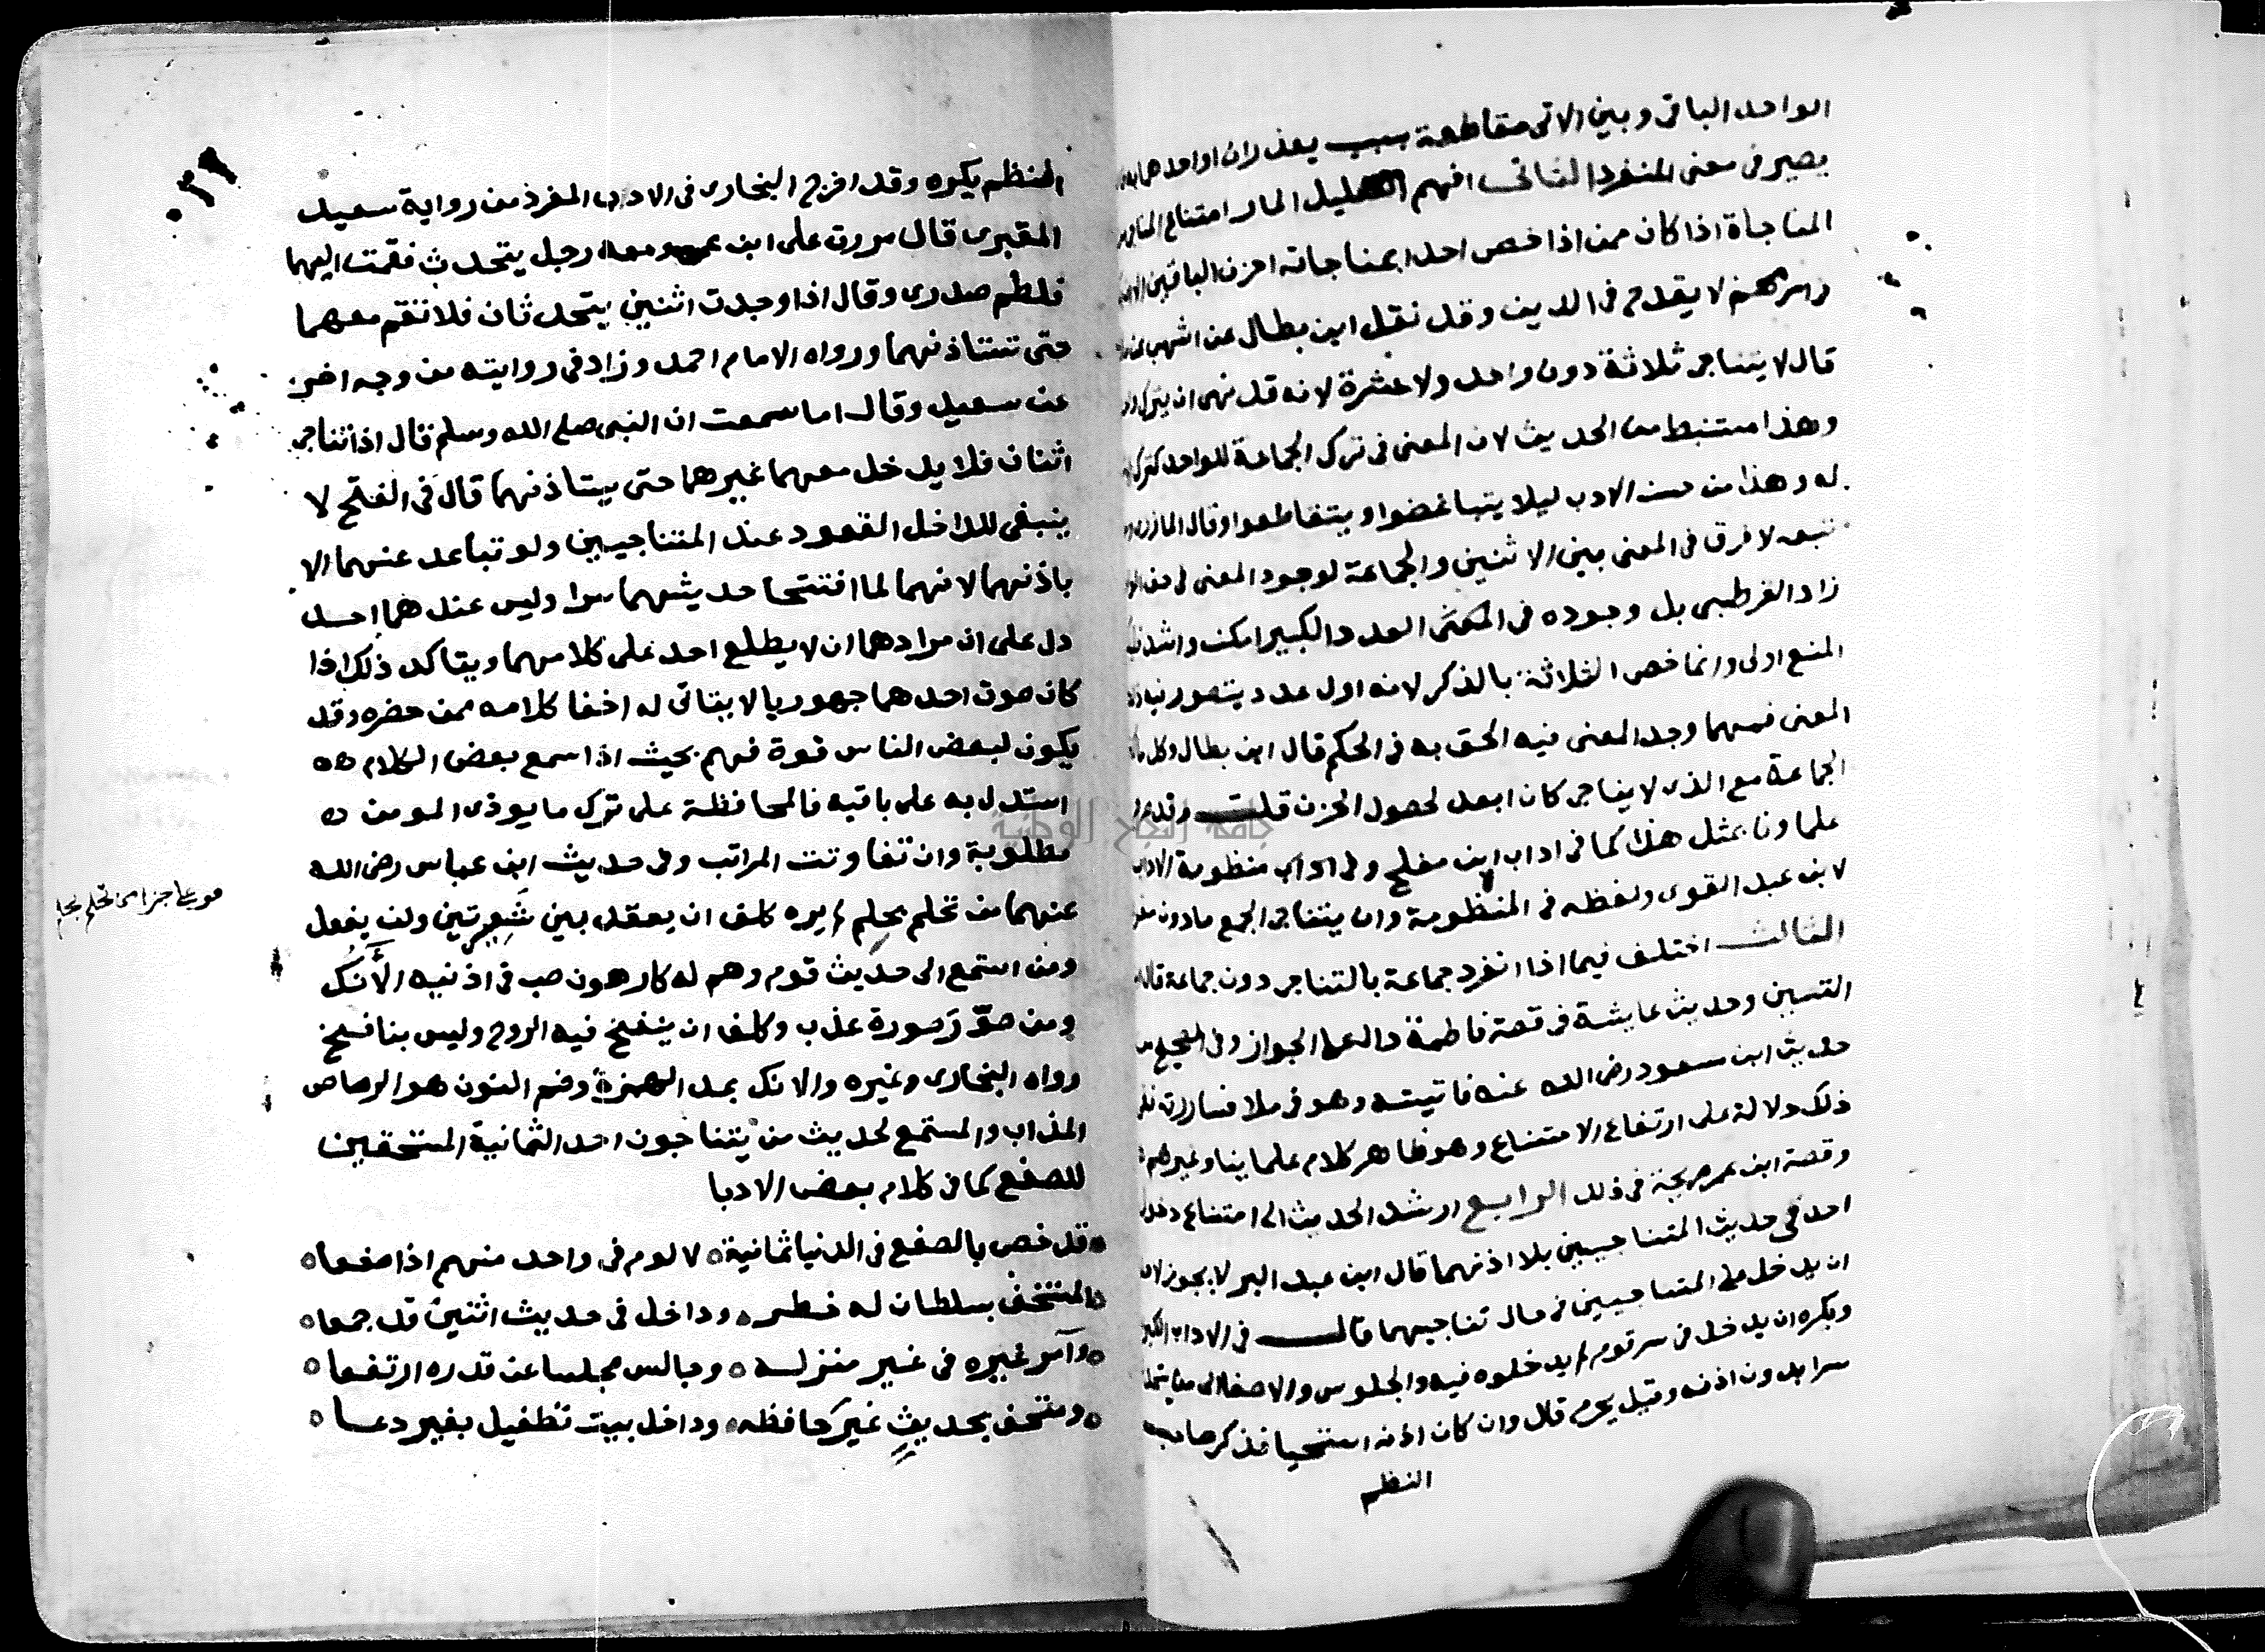 الواحد الباقى وبين الاتى مقاطعة بسبب يعذران او احدهما به
يصير فى معنى المنفرد الثانى افهم التعليل المار امتناع
المناجاة اذا كان ممن اذا خص احدا بمناجاته احزن الباقين
لا يقدح فى الدين وقد نقل ابن بطال عن اشهب
قال لا يتناجى ثلاثة دون واحد ولا عشرة لانه قد نهى ان يترك
وهذا مستنبط من الحديث لان المعنى فى ترك الجماعة للواحد كترك
له وهذا من حسن الادب ليلا يتباغضوا ويتقاطعوا وقال المازرى
تبعه لا فرق فى المعنى بين الاثنين والجماعة لوجود المعنى فى حق
زاد القرطبى بل وجوده فى العدد الكبير امكن واشد
المنع اولى وانما خص الثلاثة بالذكر لانه اول عدد يتصور فيه
المعنى فمهما وجد المعنى فيه الحق به فى الحكم قال ابن بطال وكل
الجماعة مع الذى لا يناجى كان ابعد لحصول الحزن قلت وقد
علماونا بمثل هذا كما فى اداب ابن مفلح وفى اداب منظومة الاداب
لابن عبد القوى ولفظه فى المنظومة وان يتناجى الجمع ما دون مفرد
الثالث اختلف فيما اذا انفرد جماعة بالتناجى دون جماعة قال
التين وحديث عايشة فى قصة فاطمة دال على الجواز وفى الصحيح من
حديث ابن مسعود رضى الله عنه فاتيته وهو فى ملا فساررته
ذلك دلالة على ارتفاع الامتناع وهو ظاهر كلام علماينا وغيرهم
وقصة ابن عمر صريحة فى ذلك الرابع ارشد الحديث الى امتناع دخول
احد فى حديث المتناجيين بلا اذنهما قال ابن عبد البر لا يجوز لاحد
ان يدخل على المتناجيين فى حال تناجيهما قال فى الاداب الكبرى
ويكره ان يدخل فى سر قوم لم يدخلوه فيه والجلوس والاصغا الى من يتحدث
سرا بدون اذنه وقيل يحرم قال وان كان اذنه استحيا فذكر صاحب
النظم
المنظم يكره وقد اخرج البخارى فى الادب المفرد من رواية سعيد
المقبرى قال مررت على ابن عمر ومعه رجل يتحدث فقمت اليهما
فلطم صدرى وقال اذا وجدت اثنين يتحدثان فلا تقم معهما
حتى تستاذنهما ورواه الامام احمد وزاد فى روايته من وجه اخر
عن سعيد وقال اما سمعت ان النبى صلى الله وسلم قال اذا تناجى
اثنان فلا يدخل معهما غيرهما حتى يستاذنهما قال فى الفتح لا
ينبغى للداخل القعود عند المتناجيين ولو تباعد عنهما الا
باذنهما لانهما لما افتتحا حديثهما سرا وليس عندهما احد
دل على ان مرادهما ان لا يطلع احد على كلامهما ويتاكد ذلك اذا
كان صوت احدهما جهوريا لا يتاتى له اخفا كلامه ممن حضره وقد
يكون لبعض الناس قوة فهم بحيث اذا سمع بعض الكلام ٥٥
استدل به على باقيه فالمحافظة على ترك ما يوذى المومن ٥٥
مطلوبة وان تفاوتت المراتب وفى حديث ابن عباس رضى الله
عنهما من تحلم بحلم لم يره كلف ان يعقد بين شعيرتين ولن يفعل
ومن استمع الى حديث قوم وهم له كارهون صب فى اذنيه الآنك
ومن صوّر صورة عذب وكلف ان ينفخ فيه الروح وليس بنافخ
رواه البخارى وغيره والانك بمد الهمزة وضم النون هو الرصاص
المذاب والمستمع لحديث من يتناجون احد الثمانية المستحقين
للصفع كما فى كلام بعض الادبا
٥ قد خص بالصفع فى الدنيا ثمانية ٥ لا لوم فى واحد منهم اذا صفعا ٥
٥ المستخف بسلطان له خطر ٥ وداخل فى حديث اثنين قد جمعا ٥
٥ وآمر غيره فى غير منزله ٥ وجالس مجلسا عن قدره ارتفعا ٥
٥ ومتحف بحديثٍ غير حافظه ٥ وداخل بيت تطفيل بغير دعا ٥
جامعة النجاح الوطنية